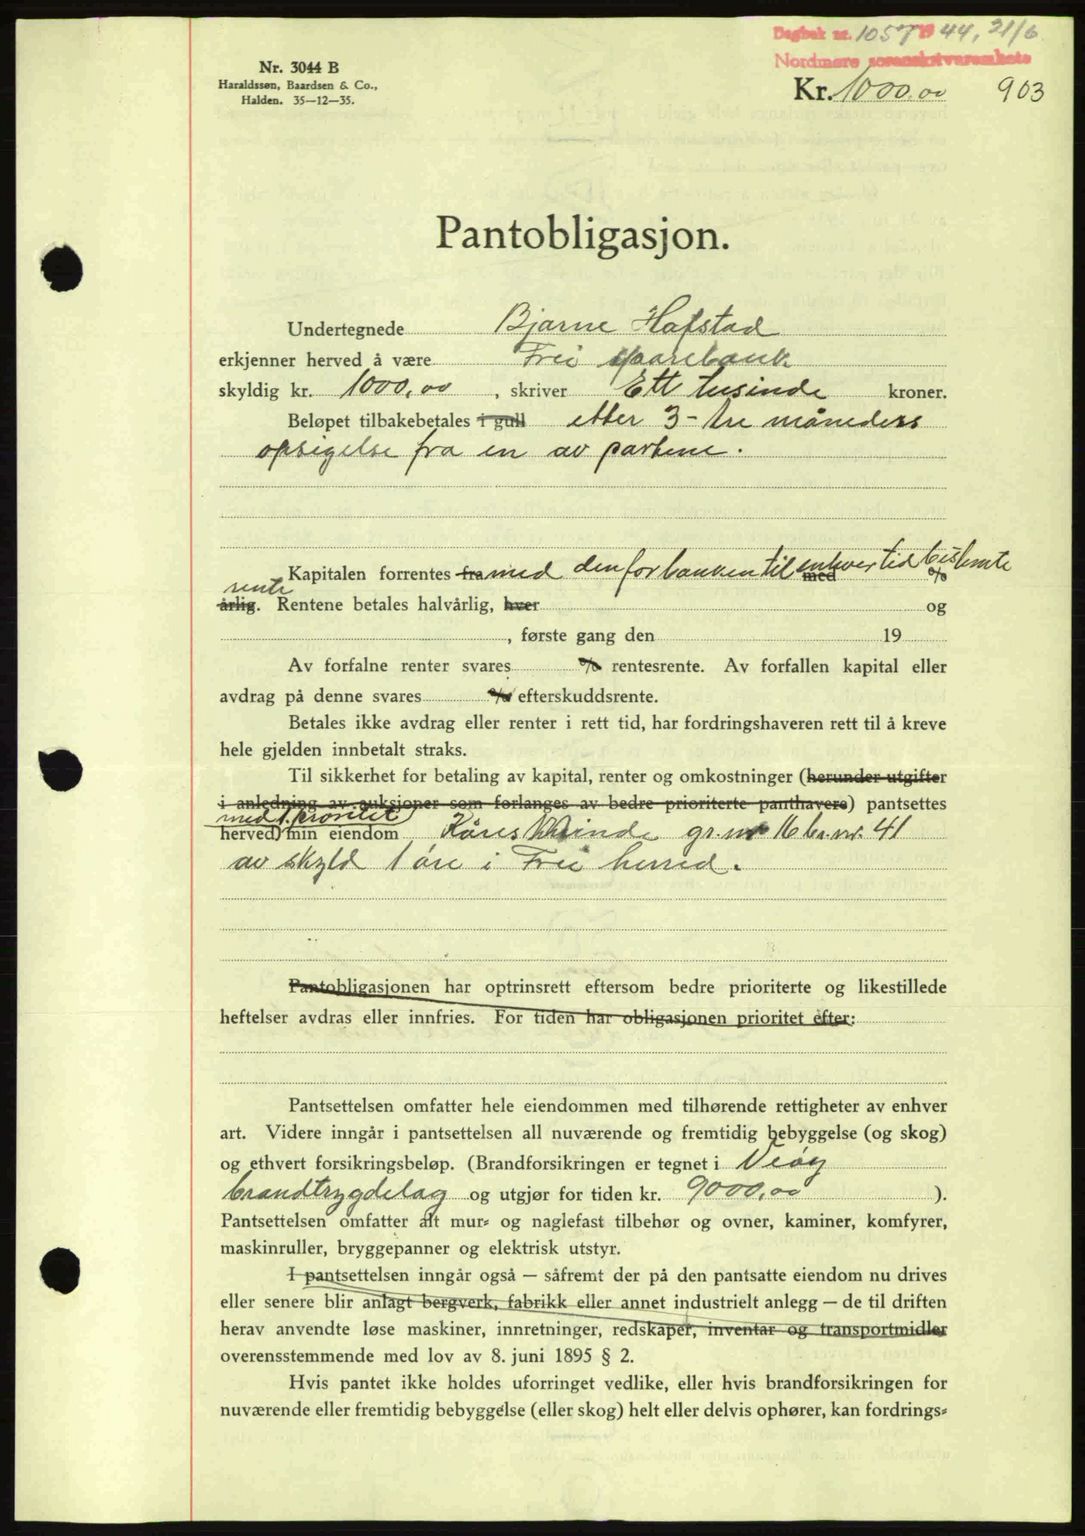 Dagbok nr. 1057 1944, 21/6
Nordmøre sorenskriverembete
Nr. 3044 B
Haraldssøn, Baardsen & Co.,
Halden. 35—12—35.
Kr. 1000.00 903
Pantobligasjon.
Undertegnede Bjarne Hafstad
erkjenner herved å være Frei sparebank
skyldig kr. 1000,00 , skriver Ett tusinde kroner.
Beløpet tilbakebetales i gull etter 3 - tre måneders
opsigelse fra en av partene.
Kapitalen forrentes fra med den for banken til enhver tid bestemte
med %
rente
årlig. Rentene betales halvårlig, hver og
, første gang den 19
Av forfalne renter svares % rentesrente. Av forfallen kapital eller
avdrag på denne svares % efterskuddsrente.
Betales ikke avdrag eller renter i rett tid, har fordringshaveren rett til å kreve
hele gjelden innbetalt straks.
Til sikkerhet for betaling av kapital, renter og omkostninger (herunder utgifter
i anledning av auksjoner som forlanges av bedre prioriterte panthavere) pantsettes
med 1. prioritet
herved min eiendom gr.nr 16 br.nr. 41
av skyld 1 øre i Frei herred.
Pantobligasjonen har optrinsrett eftersom bedre prioriterte og likestillede
heftelser avdras eller innfries. For tiden har obligasjonen prioritet efter:
Pantsettelsen omfatter hele eiendommen med tilhørende rettigheter av enhver
art. Videre inngår i pantsettelsen all nuværende og fremtidig bebyggelse (og skog)
og ethvert forsikringsbeløp. (Brandforsikringen er tegnet i Veøy
brandtrygdelag og utgjør for tiden kr. 9000,00 ).
Pantsettelsen omfatter alt mur- og naglefast tilbehør og ovner, kaminer, komfyrer,
maskinruller, bryggepanner og elektrisk utstyr.
I pantsettelsen inngår også — såfremt der på den pantsatte eiendom nu drives
eller senere blir anlagt bergverk, fabrikk eller annet industrielt anlegg — de til driften
herav anvendte løse maskiner, innretninger, redskaper, inventar og transportmidler
overensstemmende med lov av 8. juni 1895 § 2.
Hvis pantet ikke holdes uforringet vedlike, eller hvis brandforsikringen for
nuværende eller fremtidig bebyggelse (eller skog) helt eller delvis ophører, kan fordrings-